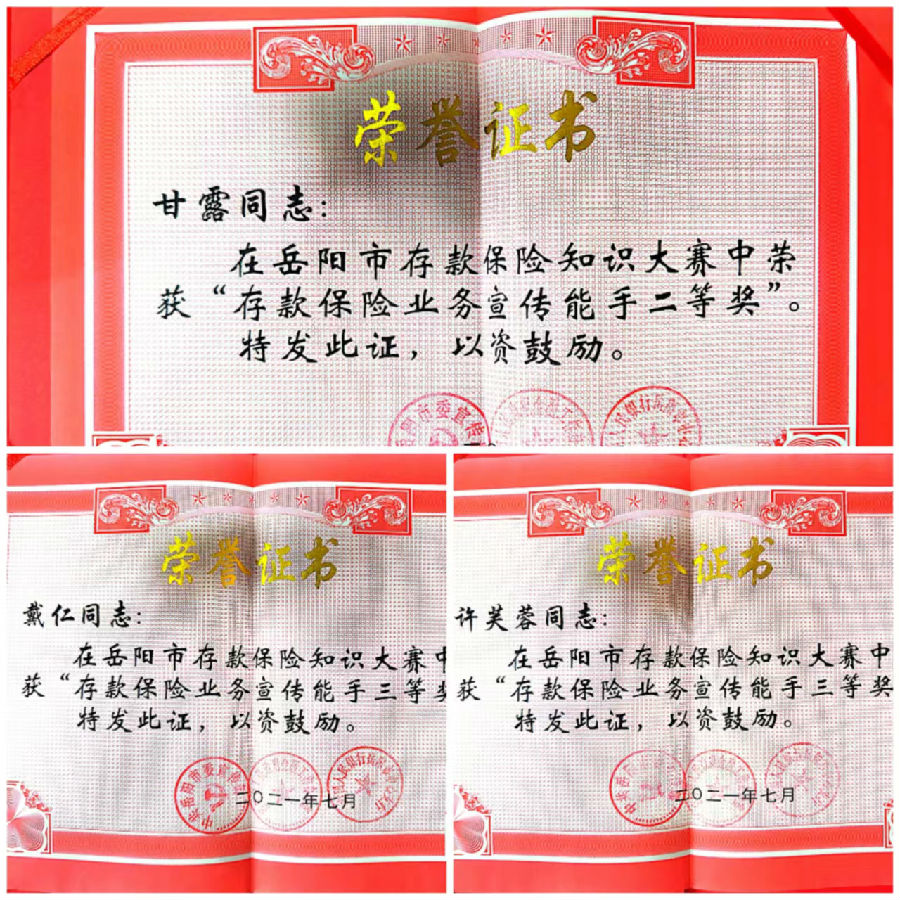 荣誉证书
甘露同志：
在岳阳市存款保险知识大赛中荣
获“存款保险业务宣传能手二等奖”。
特发此证，以资鼓励。
荣誉证书
戴仁同志：
在岳阳市存款保险知识大赛中
获“存款保险业务宣传能手三等奖
特发此证，以资鼓励。
二〇二一年七月
荣誉证书
许芙蓉同志：
在岳阳市存款保险知识大赛中
获“存款保险业务宣传能手三等奖
特发此证，以资鼓励。
二〇二一年七月